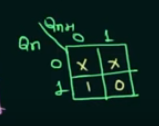 Qn+1
Qn
0 1
0 x x
1 1 0